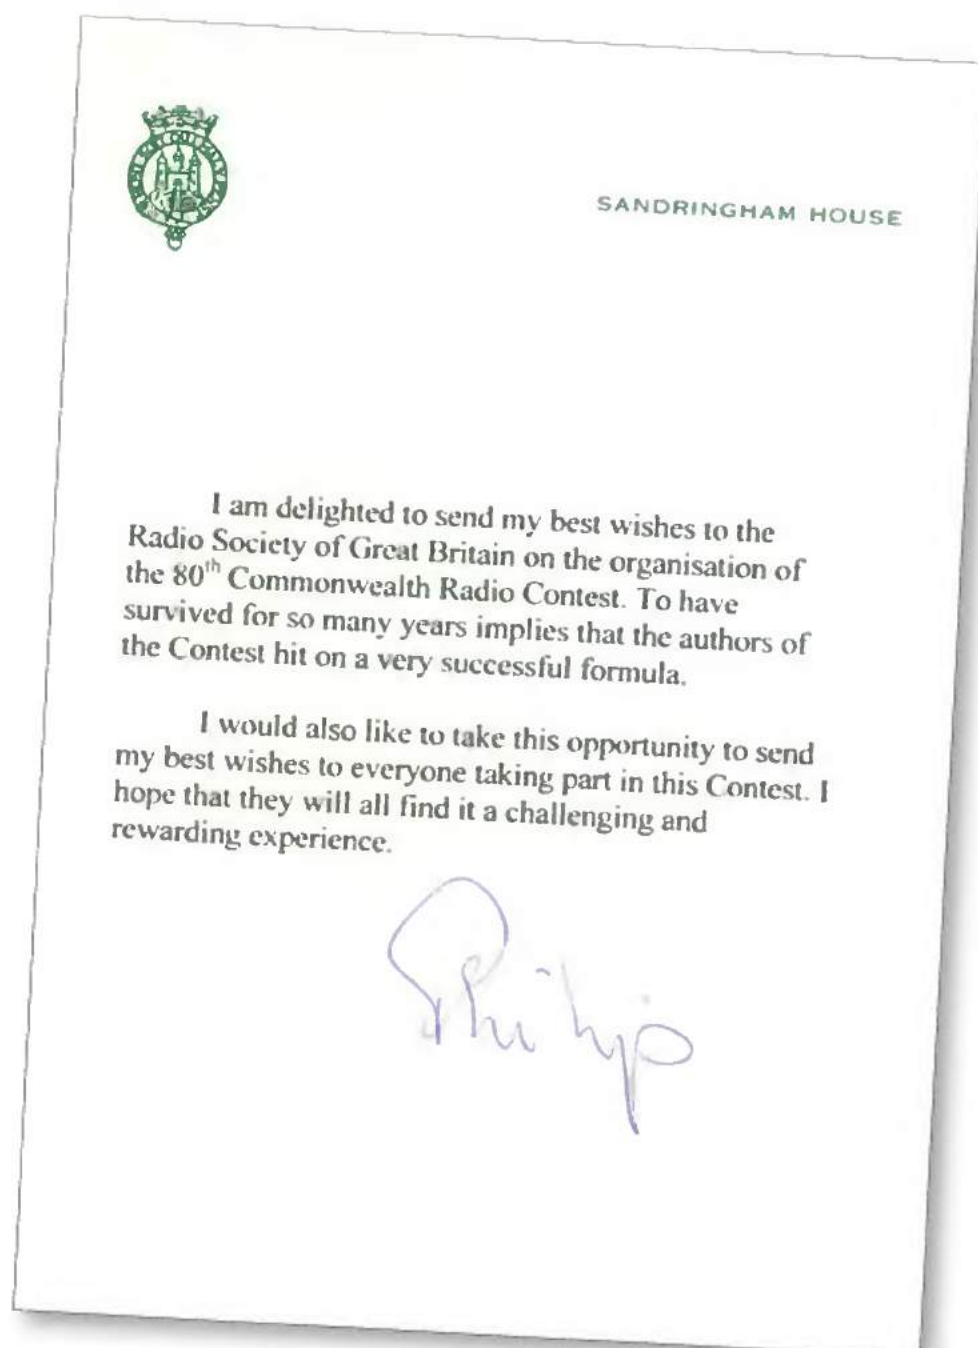 SANDRINGHAM HOUSE
I am delighted to send my best wishes to the
Radio Society of Great Britain on the organisation of
the 80th Commonwealth Radio Contest. To have
survived for so many years implies that the authors of
the Contest hit on a very successful formula.
I would also like to take this opportunity to send
my best wishes to everyone taking part in this Contest. I
hope that they will all find it a challenging and
rewarding experience.
Philip